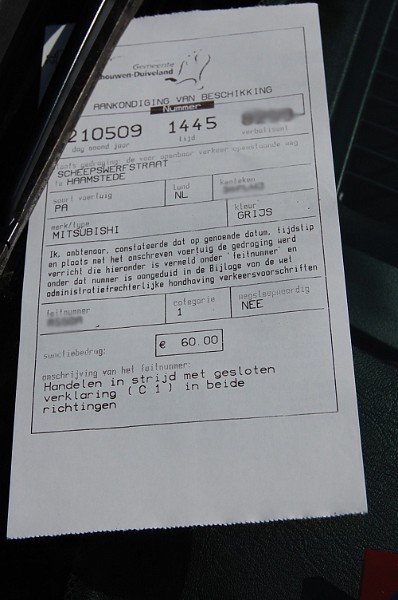 Gemeente
Schouwen-Duiveland
AANKONDIGING VAN BESCHIKKING
Nummer
210509 1445
dag maand jaar tijd verbalisant
plaats gedraging: de voor openbaar verkeer openstaande weg
SCHEEPSWERFSTRAAT
te HAAMSTEDE
soort voertuig land kenteken
PA NL
merk/type kleur
MITSUBISHI GRIJS
Ik, ambtenaar, constateerde dat op genoemde datum, tijdstip
en plaats met het omschreven voertuig de gedraging werd
verricht die hieronder is vermeld onder 'feitnummer' en
onder dat nummer is aangeduid in de Bijlage van de wet
administratiefrechterlijke handhaving verkeersvoorschriften
feitnummer categorie wegsleepwaardig
1 NEE
sanctiebedrag: € 60.00
omschrijving van het feitnummer:
Handelen in strijd met gesloten
verklaring (C 1) in beide
richtingen